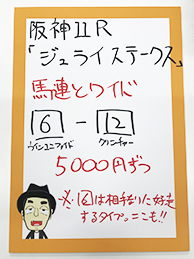 阪神11R
「ジュライステークス」
馬連とワイド
6 - 12
ヴァンユニファイド クリンチャー
5000円ずつ
※12は相手なりに好走
するタイプ。ここも!!